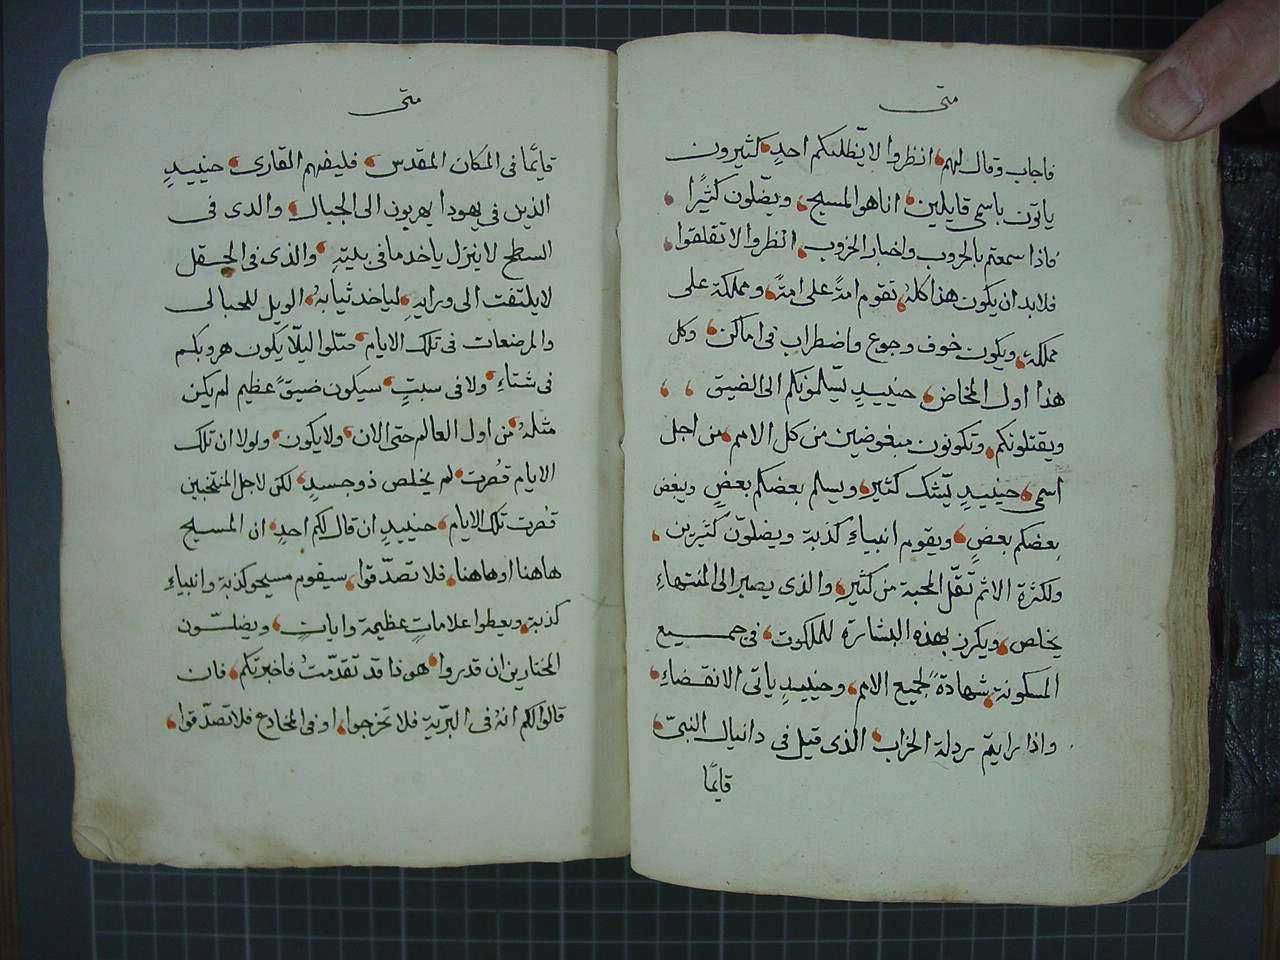 متى
فاجاب وقال لهم، انظروا لا يّظلكم احدٍ، كثيرون
ياتون باسمى قايلين، انا هو المسيح، ويضّلون كثيرًا،
فاذا سمعتم بالحروب واخبار الحروب، انظروا لا تقلقوا،
فلا بد ان يكون هذا كله، تقوم امةً على امةً، ومملكة على
مملكة، ويكون خوف وجوع واضطراب فى اماكن، وكل
هذا اول المخاض، حينيدٍ يّسلمونكم الى الضيق، ،
ويقتلونكم، وتكونون مبغوضين من كل الامم، من اجل
اسمى، حينيدٍ يّشك كثير، ويسلم بعضكم بعضٍ ويبغض
بعضكم بعضٍ، ويقوم انبياءِ كذبة ويضلوّن كثيرين،
ولكثرة الاثم تقّل المحبة من كثيرٍ، والذى يصبر الى المنتهاءِ
يخلص، ويكرز بهذه البشارة للملكوت، فى جميع
المسكونة، شهادةً لجميع الامم، وحينيدٍ ياتى الانقضاءِ،
واذا رايتم ردلة الخراب، الذى قيل فى دانيال النبىّ،
قايمًا
متى
قايمًا فى المكان المقدس، فليفهم القارى، حينيدٍ
الذين فى يهودا يهربون الى الجبال، والدى فى
السطح لا ينزل ياخد ما فى بيتهِ، والذى فى الحقل
لا يلتفت الى ورايهِ، لياخد ثيابهُ، الويل للحبالى
والمرضعات فى تلك الايام، صّلوا ليلّا يكون هروبكم
فى شتاءٍ، ولا فى سبتٍ، سيكون ضيقً عظيم لم يكن
مثلهُ، من اول العالم حتى الان، ولا يكون، ولولا ان تلك
الايام قصُرت، لم يخلص ذو جسدٍ، لكن لاجل المنتخبين
قصُرت تلك الايام، حينيدٍ ان قال لكم احدٍ، ان المسيح
هاهنا او هاهنا، فلا تصدّقوا، سيقوم مسيحو كذبة وانبياءِ
كذبة، ويعطوا علاماتٍ عظيمة واياتٍ، ويضلّون
المختارين ان قدروا، هوذا قد تقدّمتُ فاخبرتكم، فان
قالوا لكم انهُ فى البرّية فلا تخرجوا، او فى المخادع فلا تصدّقوا،